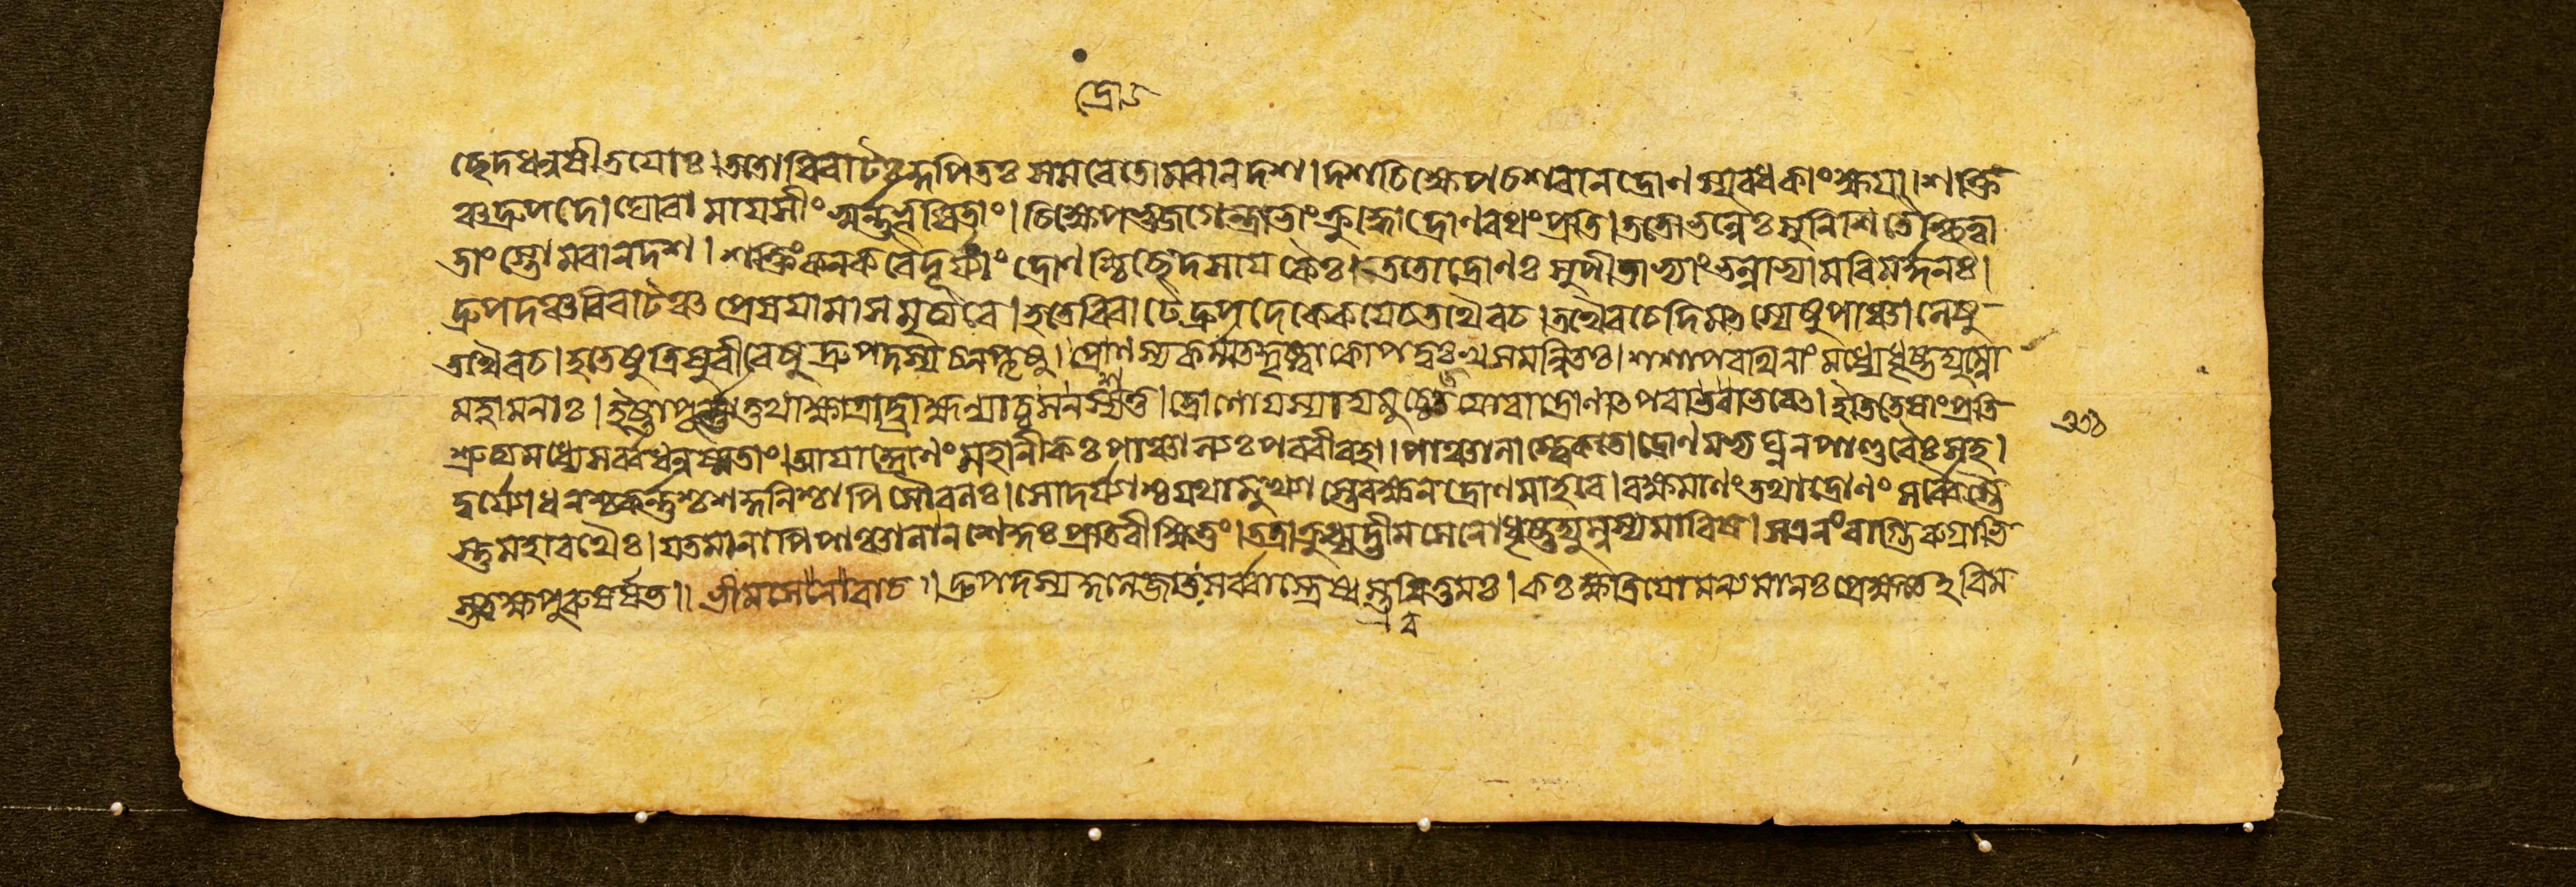 দ্রো
চ্ছেদ ধনুষী তয়োঃ। ততো বিরাটঃ কুপিতঃ সমরে তোমরান দশ। দশ চিক্ষেপ চ শরান দ্রোণস্য বধকাংক্ষয়া। শক্তিং
চ দ্রুপদো ঘোরা মায়সীং স্বর্ণভূষিতাং। চিক্ষেপ ভুজগেন্দ্রাভাং ক্রুদ্ধো দ্রোণরথং প্রতি। ততো ভল্লৈঃ সুনিশিতৈশ্ছিত্বা
তাংস্তোমরান দশ। শক্তিং কনকবৈদূর্য্যাং দ্রোণশ্চিচ্ছেদ সায়কৈঃ। ততো দ্রোণঃ সুপীতাভ্যাং ভল্লাভ্যামরিমর্দ্দনঃ।
দ্রুপদঞ্চ বিরাটঞ্চ প্রেষয়ামাস মৃত্যবে। হতে বিরাটে দ্রুপদে কেকয়ে চ তথৈব চ। তথৈব চেদিমৎস্যেষু পাঞ্চালেষু
তথৈব চ। হতেষু ত্রিষু বীরেষু দ্রুপদস্য চ নপ্তৃষু। দ্রোণস্য কর্ম্ম তদ্দৃষ্ট্বা কোপদুঃখসমন্বিতঃ। শশাপ রথিনাং মধ্যে ধৃষ্টদ্যুম্নো
মহামনাঃ। ইষ্টাপূর্ত্তা তথা ক্ষাত্রাদ্ব্রাহ্মণ্যাচ্চ স নশ্যতু। দ্রোণো যস্যাদ্য মুচ্যেত যো বা দ্রোণাৎ পরাভবেৎ। ইতি তেষাং প্রতি
শ্রুত্য মধ্যে সর্ব্বধনুষ্মতাং। আয়াদ্দ্রোণং সহানীকঃ পাঞ্চাল্যঃ পরবীরহা। পাঞ্চালাস্ত্বেকতো দ্রোণমভ্যঘ্নন পাণ্ডবৈঃ সহ।
দুর্য্যোধনশ্চ কর্ণশ্চ শকুনিশ্চাপি সৌবলঃ। সোদর্য্যাশ্চ যথামুখ্যাস্তেরক্ষন দ্রোণমাহবে। রক্ষমাণং তথা দ্রোণং সর্ব্বৈস্তৈ
স্তু মহারথৈঃ। যতমানাপি পাঞ্চালা ন শেকুঃ প্রতিবীক্ষিতুং। তত্রাক্রুধ্যদ্ভীমসেনো ধৃষ্টদ্যুম্নস্য মারিষ। স এনং বাগ্ভিরুগ্রাভি
স্ততক্ষ পুরুষর্ষভ॥ ভীমসেনোবাচ॥ দ্রুপদস্য কুলে জাতঃ সর্ব্বাস্ত্রেষ্বস্ত্রবিত্তমঃ। কঃ ক্ষত্রিয়ো মন্যমানঃ প্রেক্ষেতে হরিম
ব